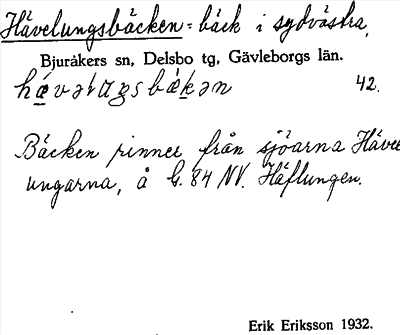 Hävelungsbäcken = bäck i sydvästra,
Bjuråkers sn, Delsbo tg, Gävleborgs län.
42.
Bäcken rinner från sjöarna Hävel
ungarna, å G. 84 NV. Häflungen.
Erik Eriksson 1932.